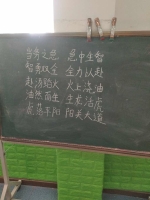 当务之急 急中生智
智勇双全 全力以赴
赴汤蹈火 火上浇油
油然而生 生龙活虎
虎落平阳 阳关大道